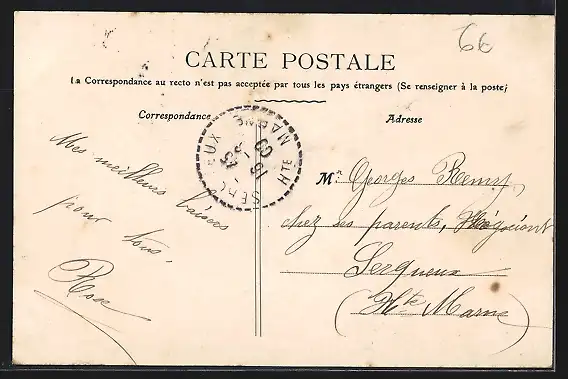 66
CARTE POSTALE
La Correspondance au recto n'est pas acceptée par tous les pays étrangers (Se renseigner à la poste)
Correspondance
Adresse
Mes meilleurs baisers
pour tous.
Rose
Mr Georges Remy,
chez ses parents, Négociant
Serqueux
(Hte Marne)
SERQUEUX
HTE MARNE